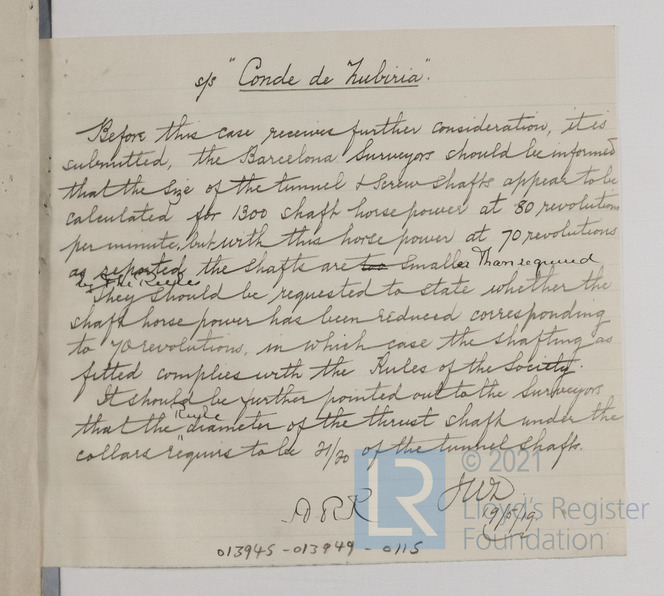 s/s "Conde de Zubiria".
Before this case receives further consideration, it is
submitted, the Barcelona Surveyors should be informed
that the size of the tunnel & screw shafts appear to be
calculated for 1300 shaft horse power at 80 revolutions
per minute, but with this horse power at 70 revolutions
as reported the shafts are too smaller than required
by the Rules
They should be requested to state whether the
shaft horse power has been reduced corresponding
to 70 revolutions, in which case the shafting as
fitted complies with the Rules of the Society.
It should be further pointed out to the Surveyors
that the Rule diameter of the thrust shaft under the
collars requires to be 21/20 of the tunnel shaft.
ARK
JWD
19/5/19
013945-013949-0115
LR
© 2021
Lloyd's Register
Foundation